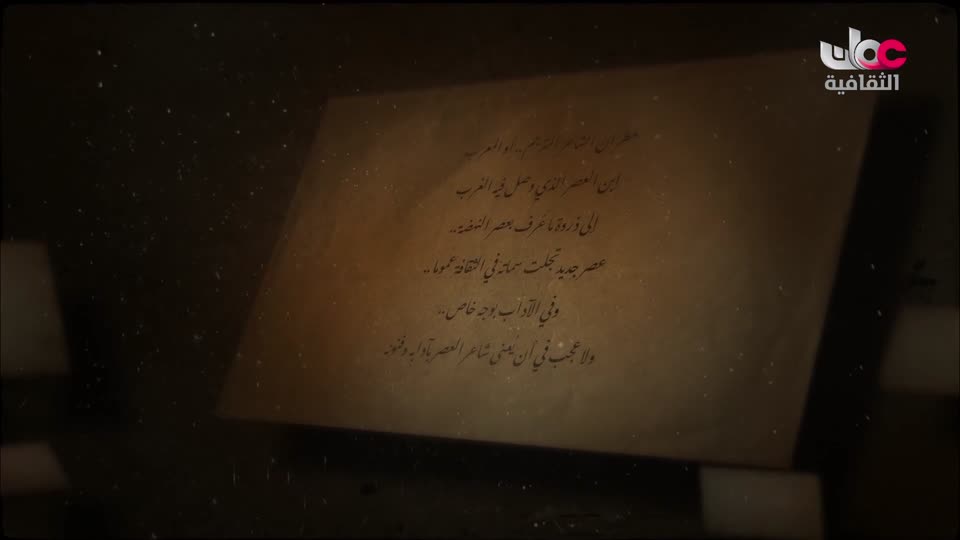 عمان
الثقافية
مطران الشاعر المترجم.. أو المعرب
ابن العصر الذي وصل فيه الغرب
إلى ذروة ما عُرف بعصر النهضة..
عصر جديد تجلت سماته في الثقافة عموما..
وفي الآداب بوجه خاص..
ولا عجب في أن يُعنى شاعر العصر بآدابه وفنونه